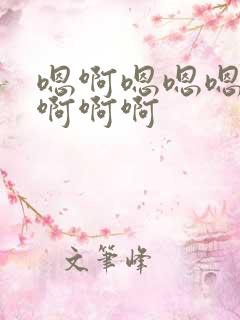 嗯啊嗯嗯嗯
啊啊啊
文筆峰